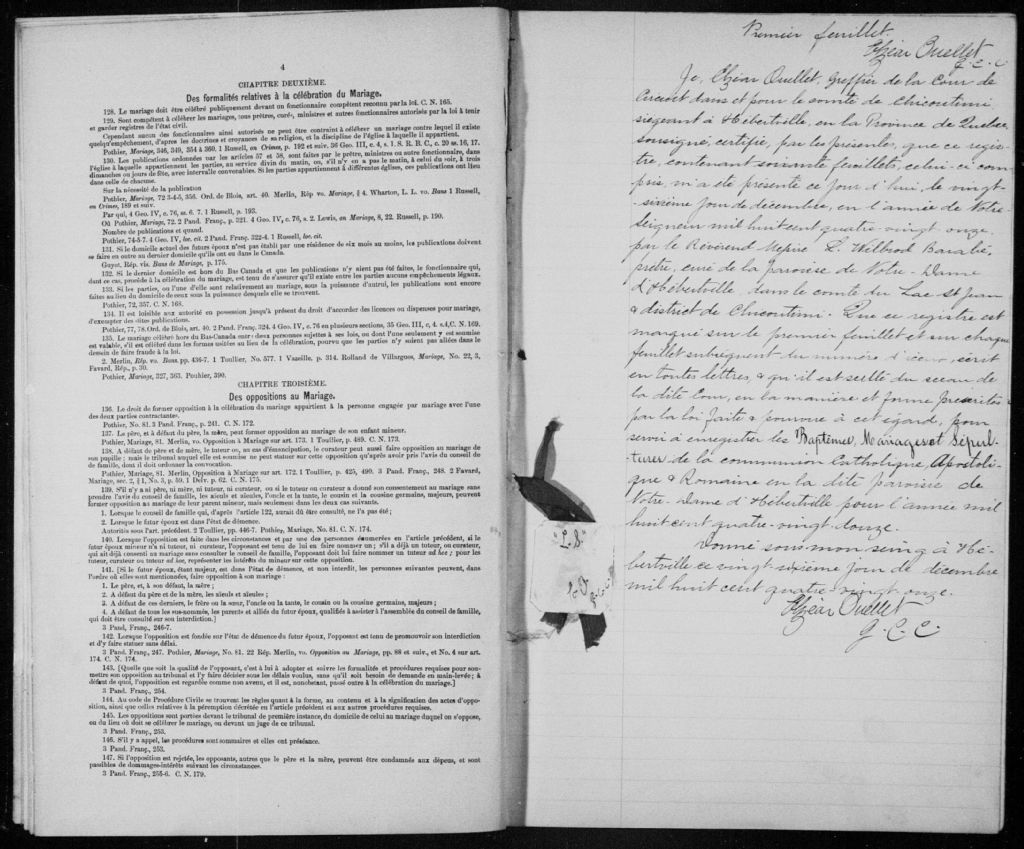 4
CHAPITRE DEUXIÈME.
Des formalités relatives à la célébration du Mariage.
128. Le mariage doit être célébré publiquement devant un fonctionnaire compétent reconnu par la loi. C. N. 165.
129. Sont compétent à célébrer les mariages, tous prêtres, curés, ministres et autres fonctionnaires autorisés par la loi à tenir
et garder registres de l'état civil.
Cependant aucun des fonctionnaires ainsi autorisés ne peut être contraint à célébrer un mariage contre lequel il existe
quelqu'empêchement, d'après les doctrines et croyances de sa religion, et la discipline de l'église à laquelle il appartient.
Pothier, Mariage, 346, 349, 354 à 360. 1 Russell, on Crimes, p. 192 et suiv. 36 Geo. III, c. 4, s. 1. S. R. B. C., c. 20 ss. 16, 17.
130. Les publications ordonnées par les articles 57 et 58, sont faites par le prêtre, ministre ou autre fonctionnaire, dans
l'église à laquelle appartiennent les parties, au service divin du matin, ou, s'il n'y en a pas le matin, à celui du soir, à trois
dimanches ou jours de fête, avec intervalle convenables. Si les parties appartiennent à différentes églises, ces publications ont lieu
dans celle de chacune.
Sur la nécessité de la publication
Pothier, Mariage, 72 3-4-5, 356. Ord. de Blois, art. 40. Merlin, Rép vo. Mariage, § 4. Wharton, L. L. vo. Bans 1 Russell,
on Crimes, 189 et suiv.
Par qui, 4 Geo. IV, c. 76, ss. 6. 7. 1 Russell, p. 193.
Où Pothier, Mariage, 72. 2 Pand. Franç. p. 321. 4 Geo. IV, c. 76, s. 2. Lewis, on Mariage, 8, 22. Russell, p. 190.
Nombre de publications et quand.
Pothier, 74-5-7. 4 Geo. IV, loc. cit. 2 Pand. Franç. 322-4. 1 Russell, loc. cit.
131. Si le domicile actuel des futurs époux n'est pas établi par une résidence de six mois au moins, les publications doivent
se faire en outre au dernier domicile qu'ils ont eu dans le Canada.
Guyot, Rép. vis. Bans de Mariage, p. 175.
132. Si le dernier domicile est hors du Bas Canada et que les publications n'y aient pas été faites, le fonctionnaire qui,
dant ce cas, procède à la célébration du mariage, est tenu de s'assurer qu'il existe entre les parties aucuns empêchements légaux.
133. Si les parties, ou l'une d'elle sont relativement au mariage, sous la puissance d'autrui, les publications sont encore
faites au lieu du domicile de ceux sous la puissance desquels elle se trouvent.
Pothier, 72, 357. C. N. 168.
134. Il est loisible aux autorité en possession jusqu'à présent du droit d'accorder des licences ou dispenses pour mariage,
d'exempter des dites publications.
Pothier, 77, 78. Ord. de Blois, art. 40. 2 Pand. Franç. 324. 4 Geo. IV, c. 76 en plusieurs sections, 35 Geo. III, c. 4. s.4, C. N. 169.
135. Le mariage célébré hors du Bas-Canada entre deux personnes sujettes à ses lois, ou dont l'une seulement y est soumise
est valable, s'il est célébré dans les formes usitées au lieu de la célébration, pourvu que les parties n'y soient pas allées dans le
dessein de faire fraude à la loi.
2. Merlin, Rép. vo. Bans. pp. 436-7. 1 Toullier, No. 577. 1 Vazeille, p. 314. Rolland de Villargues, Mariage, No. 22, 3,
Favard, Rép., p. 30.
Pothier, Mariage, 327, 363. Pouhier, 390.
CHAPITRE TROISIÈME.
Des oppositions au Mariage.
136. Le droit de former opposition à la célébration du mariage appartient à la personne engagée par mariage avec l'une
des deux parties contractantes.
Pothier, No. 81. 3 Pand Franç., p. 241. C. N. 172.
137. Le père, et à défaut du père, la mère, peut former opposition au mariage de son enfant mineur.
Pothier, Mariage, 81. Merlin, vo. Opposition à Mariage sur art. 173. 1 Toullier, p. 489. C. N. 173.
138. A défaut de père et de mère, le tuteur ou, au cas d'émancipation, le curateur peut aussi faire opposition au mariage de
son pupille; mais le tribunal auquel elle est soumise ne peut statuer sur cette opposition qu'après avoir pris l'avis du conseil de
de famille, dont il doit ordonner la convocation.
Pothier, Mariage, 81. Merlin, Opposition à Mariage sur art. 172. 1 Toullier, p. 425, 490. 3 Pand. Franç., 248. 2 Favard,
Mariage, sec. 2, § 1, No. 3, p. 59. 1 Delv. p. 62. C. N. 175.
139. S'il n'y a si père, ni mère, ni tuteur, ni curateur, ou si le tuteur ou curateur a donné son consentement au mariage sans
prendre l'avis du conseil de famille, les aïeuls et aïeules, l'oncle et la tante, le cousin et la cousine germains, majeurs, peuvent
former opposition au mariage de leur parent mineur, mais seulement dans les deux cas suivants.
1. Lorsque le conseil de famille qui, d'après l'article 122, aurait dû être consulté, ne l'a pas été;
2. Lorsque le futur époux est dans l'état de démence.
Autorités sous l'art. précédent. 2 Toullier, pp. 446-7. Pothier, Mariage, No. 81. C. N. 174.
140. Lorsque l'opposition est faite dans les circonstances et par une des personnes énumérées en l'article précédent, si le
futur époux mineur n'a ni tuteur, ni curateur, l'opposant est tenu de lui en faire nommer un; s'il a déjà un tuteur, ou curateur,
qui ait déjà consenti au mariage sans consulter le conseil de famille, l'opposant doit lui faire nommer un tuteur ad hoc; pour les
tuteur, curateur ou tuteur ad hoc, représenter les intérêts du mineur sur cette opposition.
141. [Si le futur époux, étant majeur, est dans l'état de démence, et non interdit, les personnes suivantes peuvent, dans
l'ordre où elles sont mentionnées, faire opposition à son mariage:
1. Le père, et, à son défaut, la mère;
2. A défaut du père et de la mère, les aïeuls et aïeules;
3. A défaut de ces derniers, le frère ou la sœur, l'oncle ou la tante, le cousin ou la cousine germains, majeurs;
4. A défaut de tous les sus-nommés, les parents et alliés du futur époux, qualifiés à assister à l'assemblée du conseil de famille,
qui doit être consulté sur son interdiction.]
3 Pand, Franç., 246-7.
142. Lorsque l'opposition est fondée sur l'état de démence du futur époux, l'opposant est tenu de promouvoir son interdiction
et d'y faire statuer sans délai.
3 Pand. Franç., 247. Pothier, Mariage, No. 81. 22 Rép. Merlin, vo. Opposition au Mariage, pp. 88 et suiv., et No. 4 sur art.
174. C. N. 174.
143. [Quelle que soit la qualité de l'opposant, c'est à lui à adopter et suivre les formalités et procédures requises pour sou-
mettre son opposition au tribunal et l'y faire décider sous les délais voulus, sans qu'il soit besoin de demande en main-levée; à
défaut de quoi, l'opposition est regardée comme non avenu, et il est, nonobstant, passé outre à la célébration du mariage.]
3 Pand. Franç., 254.
144. Au code de Procédure Civile se trouvent les règles quant à la forme, au contenu et à la signification des actes d'oppo-
sition, ainsi que celles relatives à la péremption décrétée en l'article précédent et aux autres procédures requises.
145. Les oppositions sont portées devant le tribunal de première instance, du domicile de celui au mariage duquel on s'oppose,
ou du lieu où doit se célébrer le mariage, ou devant un juge de ce tribunal.
3 Pand. Franç., 253.
146. S'il y a appel, les procédures sont sommaires et elles ont préséance.
3 Pand. Franç., 253.
147. Si l'opposition est rejetée, les opposants, autres que le père et la mère, peuvent être condamnés aux dépens, et sont
passibles de dommages-intérêts suivant les circonstances.
3 Pand. Franç., 255-6. C. N. 179.
Premier feuillet.
Elzéar Ouellet
G. C. C
Je, Elzéar Ouellet, Greffier de la Cour de
Circuit dans et pour le comté de Chicoutimi
siégeant à Hébertville, en la Province de Québec
soussigné, certifie, par les présentes, que ce regis-
tre, contenant soixante feuillets, celui-ci com-
pris, m'a été présenté ce jour d'hui, le vingt-
-sixième jour de décembre, en l'année de Notre-
seigneur mil huit cent quatre-vingt onze,
par le Révérend Messire L. Wilbrod Barabé,
prêtre, curé de la paroisse de Notre-Dame
d'Hébertville dans le comté du Lac St Jean
& district de Chicoutimi. Que ce registre est
marqué sur le premier feuillet et sur chaque
feuillet subséquent du numéro d'icelui, écrit
en toutes lettres, & qu'il est scellé du sceau de
la dite Cour, en la manière et forme prescrites
par la loi faite & pourvue à cet égard, pour
servir à enregistrer les Baptêmes, Mariages et Sépul-
tures de la communion Catholique, Apostoli-
que & Romaine en la dite paroisse de
Notre-Dame d'Hébertville pour l'année mil
huit cent quatre-vingt douze.
Donné sous mon seing à Hé-
bertville ce vingt-sixième jour de décembre
mil huit cent quatre-vingt onze.
Elzéar Ouellet
G. C. C.
"L. S."
E O
G. C. C.